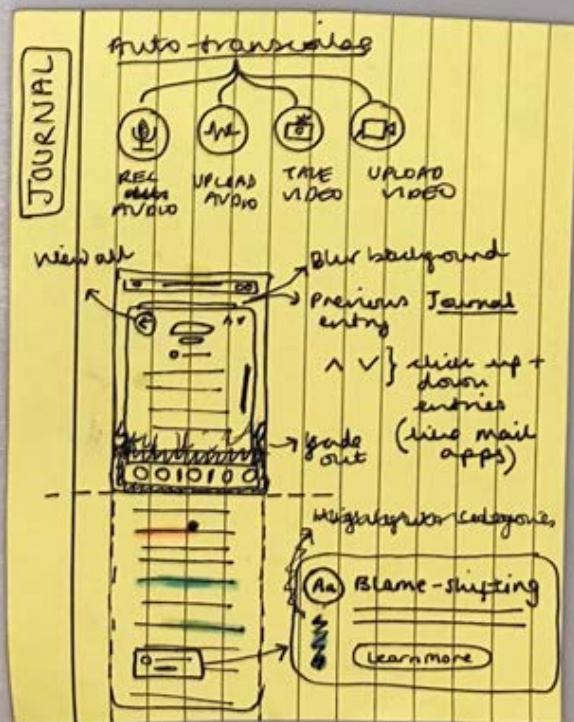 JOURNAL
Auto-transcribe
REC AUDIO
UPLOAD AUDIO
TAKE VIDEO
UPLOAD VIDEO
View all
Blur background
Previous Journal
entry
^ v } click up +
down
entries
(like mail
apps)
fade
out
categories
Aa Blame-shifting
Learn more